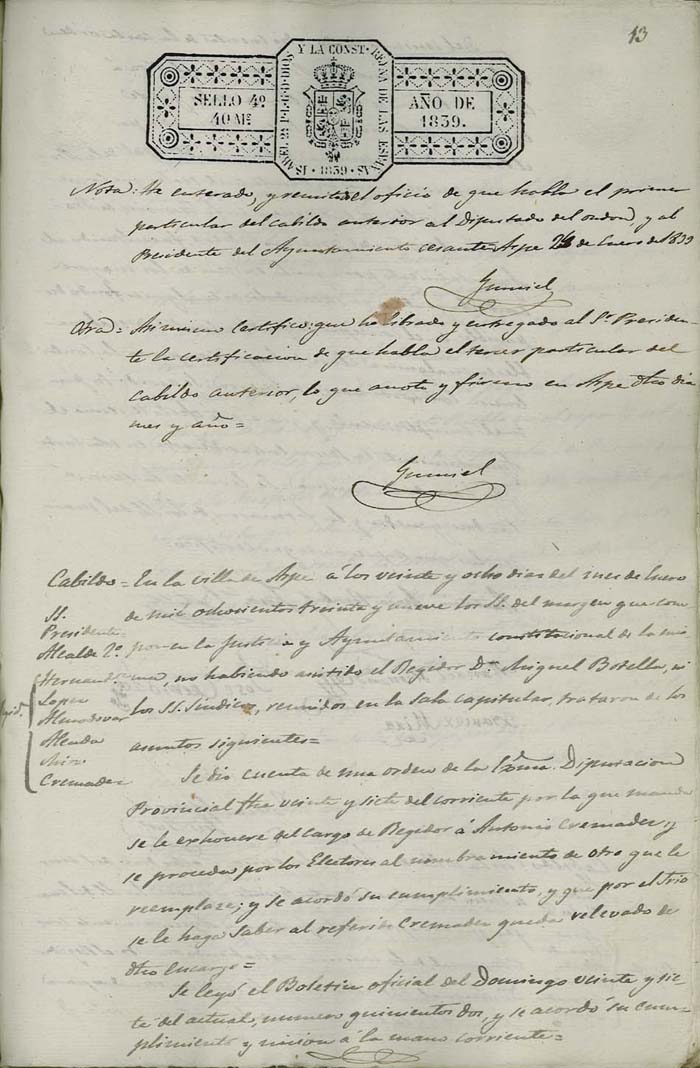 13
ISABEL 2ª P·L·G·D·DIOS Y LA CONST· REYNA DE LAS ESPAÑAS
SELLO 4º
40 Mrs
AÑO DE
1839.
·1839·
Nota: He enterado, y remití el oficio de que habla el primer
particular del cabildo anterior al Diputado del y al
Presidente del Ayuntamiento cesante. Aspe 28 de Enero de 1839
Gumiel
Otra = Asimismo certifico: que he librado y entregado al Sr. Presiden-
te la certificacion de que habla el tercer particular del
cabildo anterior, lo que anoto y firmo en Aspe dho dia
mes y año =
Gumiel
Cabildo = En la villa de Aspe á los veinte y ocho dias del mes de Enero
SS.
de mil ochocientos treinta y nueve los SS. del margen que com
Presidente
Alcalde 2º
ponen la Justicia y Ayuntamiento constitucional de la mis
Hernandz
ma, no habiendo asistido el Regidor Dn. Miguel Botella, ni
Lopez
Almodovar
los SS. Sindicos, reunidos en la Sala capitular, trataron de los
Alcada
asuntos siguientes =
Miro
Cremades
Se dio cuenta de una orden de la Exma. Diputacion
Provincial fha veinte y siete del corriente por la que manda
se le exhonere del cargo de Regidor á Antonio Cremades, y
se proceda por los Electores al nombramiento de otro que le
reemplaze; y se acordó su cumplimiento, y que por el Srio
se le haga saber al referido Cremades queda relevado de
dho encargo =
Se leyó el Boletin oficial del Domingo veinte y sie-
te del actual, numero quinientos dos, y se acordó su cum-
plimiento y union á la mano corriente =